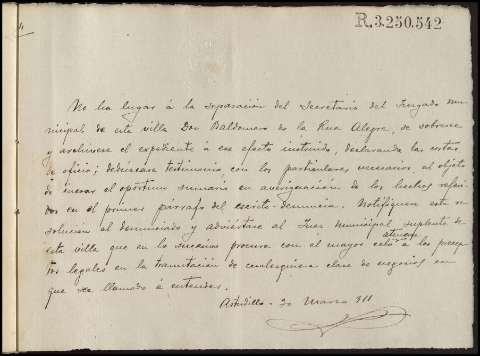 R.3.250.542
No ha lugar á la separación del Secretario del Juzgado mu-
nicipal de esta villa Don Baldomero de la Rua Alegre, se sobresee
y archívese el expediente á ese efecto instruido, declarando las costas
de oficio; dedúzcase testimonio, con los particulares necesarios al objeto
de incoar el oportuno sumario en averiguación de los hechos referi-
dos en el primer párrafo del escrito-denuncia. Notifíquese esta re-
solución al denunciado y adviértase al Juez municipal suplente de
esta villa que en lo sucesivo procure con el mayor celo atenerse á los precep-
tos legales en la tramitación de cualesquiera clase de negocios en
que sea llamado á entender.
Astudillo - 30 Marzo 911